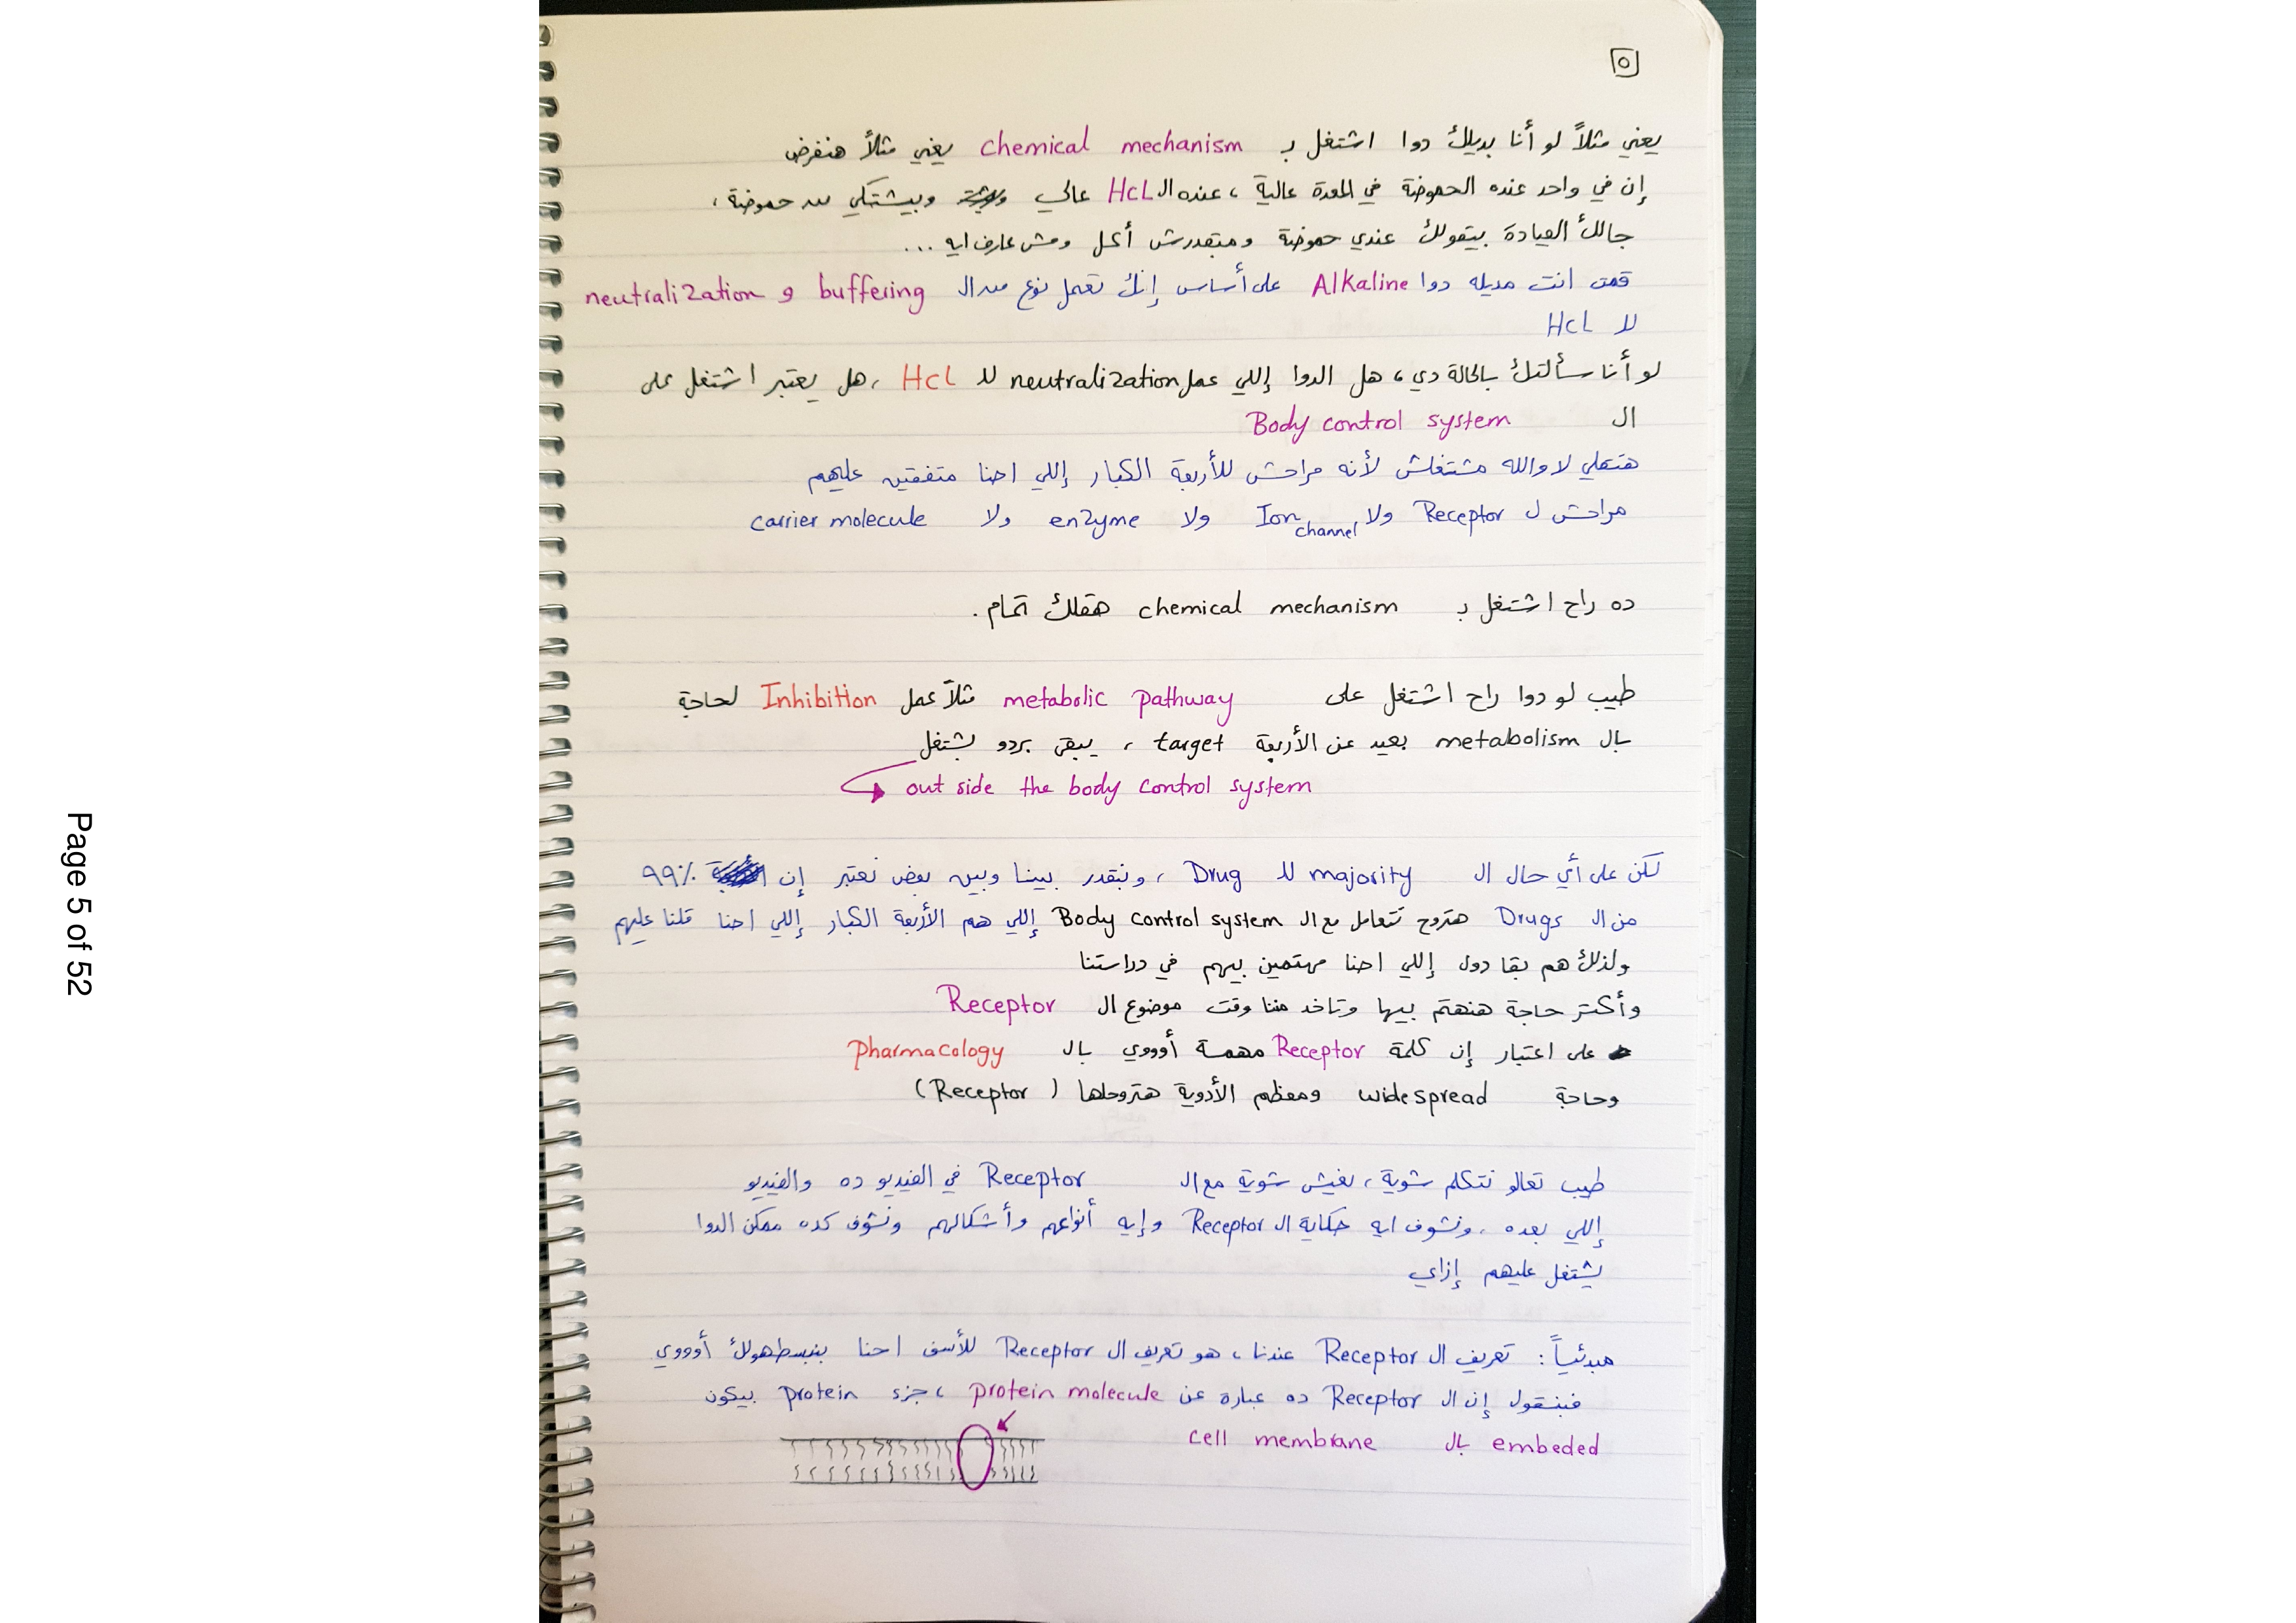 ٥
يعني مثلاً لو أنا بديلك دوا اشتغل بـ chemical mechanism يعني مثلاً هنفرض
إن في واحد عنده الحموضة في المعدة عالية ، عنده الـ HCL عالي وبيشتكي من حموضة ،
جالك العيادة بيقولك عندي حموضة ومبتقدرش أكل ومش عارف ايه ...
قمت انت مديله دوا Alkaline على أساس إنك تعمل نوع من الـ buffering و neutralization
لا HCL
لو أنا سألتك بالحالة دي ، هل الدوا إللي عمل neutralization للـ HCL ، هل يعتبر اشتغل على
الـ Body control system
هتقلي لا والله مشتغلش لأنه مراحش للأربعة الكبار إللي احنا متفقين عليهم
مراحش لـ Receptor ولا Ion channel ولا enzyme ولا carrier molecule
ده راح اشتغل بـ chemical mechanism هقلك تمام .
طيب لو دوا راح اشتغل على metabolic pathway مثلاً عمل Inhibition لحاجة
بالـ metabolism بعيد عن الأربعة target ، يبقى بردو بشتغل
out side the body control system
لكن على أي حال الـ majority للـ Drug ، ونبقدر بينا وبين بعض نعتبر إن ٩٩٪
من الـ Drugs هتروح تتعامل مع الـ Body control system إللي هم الأربعة الكبار إللي احنا قلنا عليهم
ولذلك هم بقا دول إللي احنا مهتمين بيهم في دراستنا
وأكتر حاجة هنهتم بيها وتاخد مننا وقت موضوع الـ Receptor
على اعتبار إن كلمة Receptor مهمة أوووي بالـ Pharmacology
وحاجة widespread ومعظم الأدوية هتروحلها ( Receptor )
طيب تعالو نتكلم شوية ، نعيش شوية مع الـ Receptor في الفيديو ده والفيديو
إللي بعده ، ونشوف ايه حكاية الـ Receptor وإيه أنواعهم وأشكالهم ونشوف كده ممكن الدوا
يشتغل عليهم إزاي
مبدئياً : تعريف الـ Receptor عندنا ، هو تعريف الـ Receptor للأسف احنا بنبسطهولك أوووي
فبنقول إن الـ Receptor ده عبارة عن protein molecule ، جزء protein بيكون
embeded بالـ cell membrane
Page 5 of 52